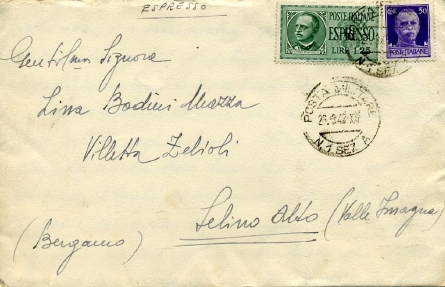 ESPRESSO
POSTE ITALIANE
ESPRESSO
LIRE 1,25
50
POSTE ITALIANE
Gentilma Signora
Lina Bodini Mazza
Villetta Zelioli
POSTA MILITARE
N.1 SEZ A
N.1 SEZ A
Selino Alto (Valle Imagna)
(Bergamo)